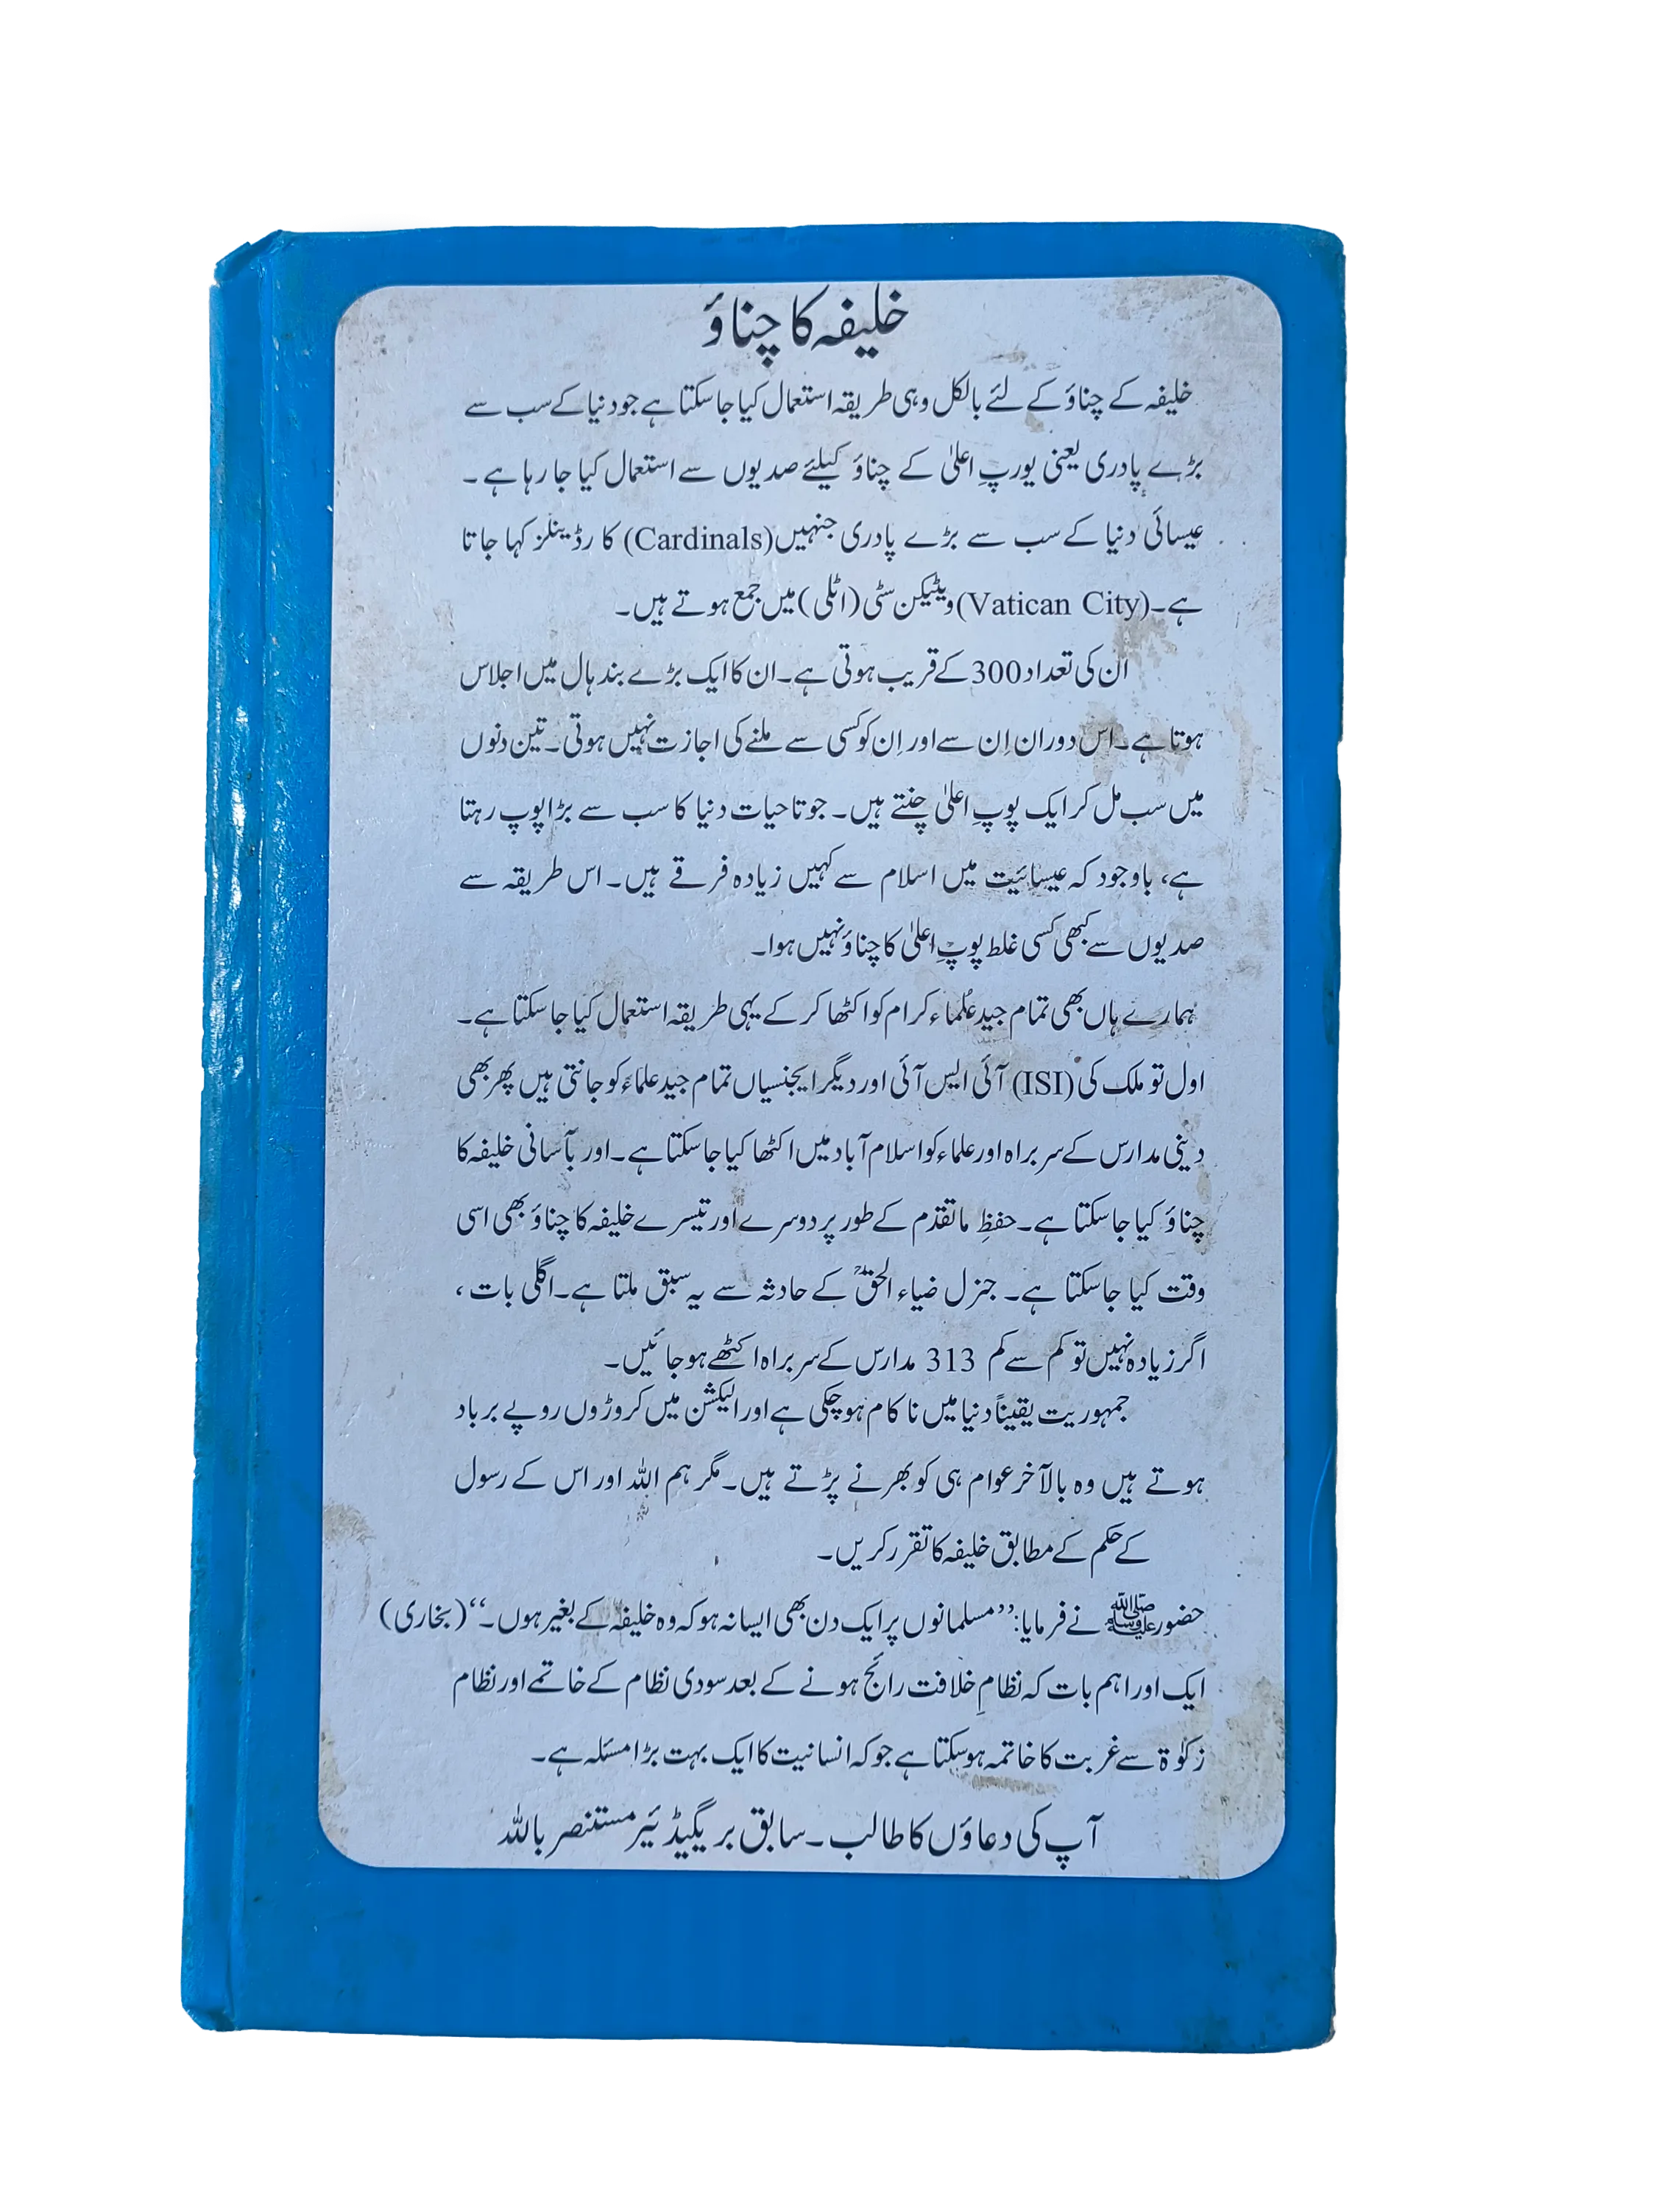 خلیفہ کا چناؤ
خلیفہ کے چناؤ کے لئے بالکل وہی طریقہ استعمال کیا جاسکتا ہے جو دنیا کے سب سے
بڑے پادری یعنی یورپِ اعلیٰ کے چناؤ کیلئے صدیوں سے استعمال کیا جا رہا ہے۔
عیسائی دنیا کے سب سے بڑے پادری جنہیں (Cardinals) کارڈینلز کہا جاتا
ہے۔ (Vatican City) ویٹیکن سٹی (اٹلی) میں جمع ہوتے ہیں۔
ان کی تعداد 300 کے قریب ہوتی ہے۔ ان کا ایک بڑے بند ہال میں اجلاس
ہوتا ہے۔ اس دوران اِن سے اور اِن کو کسی سے ملنے کی اجازت نہیں ہوتی۔ تین دنوں
میں سب مل کر ایک پوپِ اعلیٰ چنتے ہیں۔ جو تاحیات دنیا کا سب سے بڑا پوپ رہتا
ہے، باوجود کہ عیسائیت میں اسلام سے کہیں زیادہ فرقے ہیں۔ اس طریقہ سے
صدیوں سے کبھی کسی غلط پوپِ اعلیٰ کا چناؤ نہیں ہوا۔
ہمارے ہاں بھی تمام جید علماء کرام کو اکٹھا کر کے یہی طریقہ استعمال کیا جاسکتا ہے۔
اول تو ملک کی (ISI) آئی ایس آئی اور دیگر ایجنسیاں تمام جید علماء کو جانتی ہیں پھر بھی
دینی مدارس کے سربراہ اور علماء کو اسلام آباد میں اکٹھا کیا جاسکتا ہے۔ اور بآسانی خلیفہ کا
چناؤ کیا جاسکتا ہے۔ حفظِ ماتقدم کے طور پر دوسرے اور تیسرے خلیفہ کا چناؤ بھی اسی
وقت کیا جاسکتا ہے۔ جنرل ضیاء الحقؒ کے حادثہ سے یہ سبق ملتا ہے۔ اگلی بات،
اگر زیادہ نہیں تو کم سے کم 313 مدارس کے سربراہ اکٹھے ہو جائیں۔
جمہوریت یقیناً دنیا میں ناکام ہوچکی ہے اور الیکشن میں کروڑوں روپے برباد
ہوتے ہیں وہ بالآخر عوام ہی کو بھرنے پڑتے ہیں۔ مگر ہم اللہ اور اس کے رسول
کے حکم کے مطابق خلیفہ کا تقرر کریں۔
حضور ﷺ نے فرمایا: ’’مسلمانوں پر ایک دن بھی ایسا نہ ہو کہ وہ خلیفہ کے بغیر ہوں۔‘‘ (بخاری)
ایک اور اہم بات کہ نظامِ خلافت رائج ہونے کے بعد سودی نظام کے خاتمے اور نظام
زکوٰۃ سے غربت کا خاتمہ ہوسکتا ہے جو کہ انسانیت کا ایک بہت بڑا مسئلہ ہے۔
آپ کی دعاؤں کا طالب۔ سابق بریگیڈئیر مستنصر باللہ